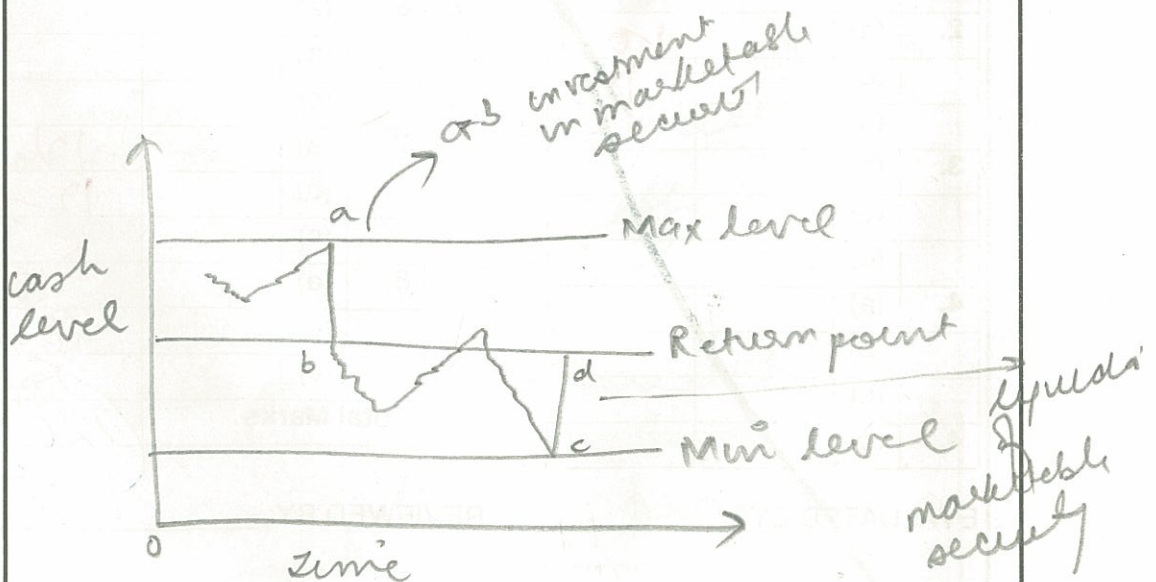 investment
in marketable
security
a
Max level
cash
level
Return point
b
d
Min level
c
of
marketable
security
0
Time